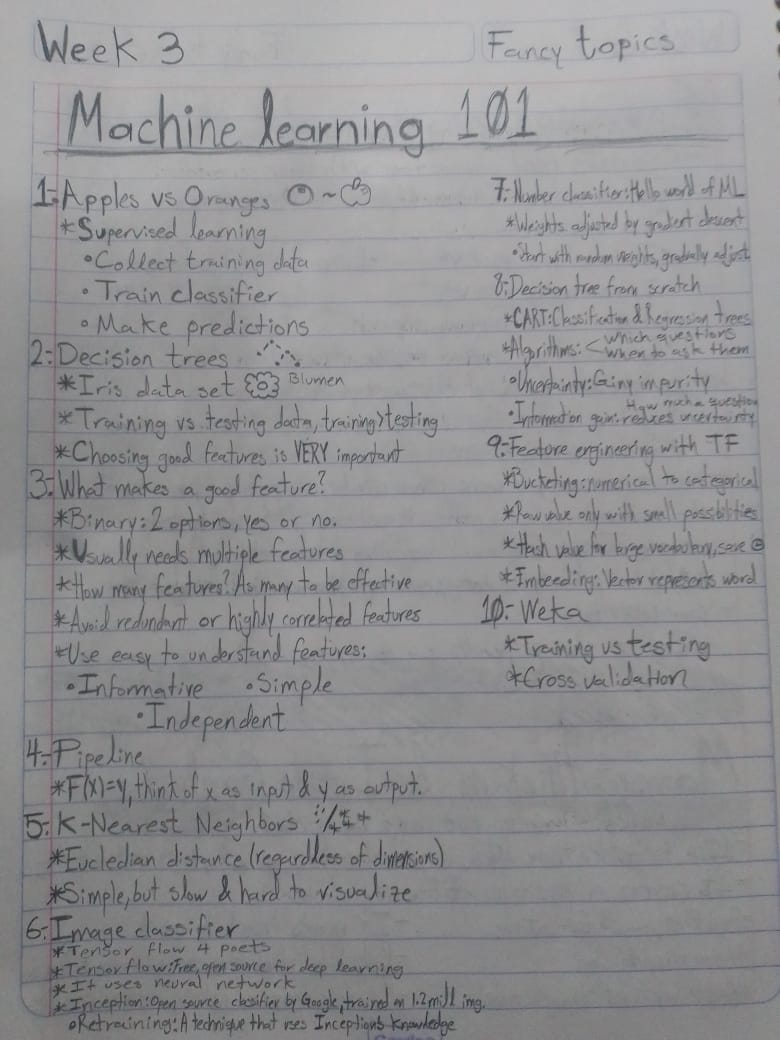 Week 3
Fancy topics
Machine learning 101
1:-Apples vs Oranges ~
*Supervised learning
•Collect training data
•Train classifier
•Make predictions
2:-Decision trees
*Iris data set Blumen
*Training vs testing data, training>testing
*Choosing good features is VERY important
3:-What makes a good feature?
*Binary: 2 options, yes or no.
*Usually needs multiple features
*How many features? As many to be effective
*Avoid redundant or highly correlated features
*Use easy to understand features:
•Informative •Simple
•Independent
4:-Pipeline
*F(X)=Y, think of x as input & y as output.
5:-K-Nearest Neighbors
*Eucledian distance (regardless of dimensions)
*Simple, but slow & hard to visualize
6:-Image classifier
*Tensor flow 4 poets
*Tensor flow: Free, open source for deep learning
*It uses neural network
*Inception: Open source clasifier by Google, trained on 1.2 mill img.
•Retraining: A technique that uses Inception's knowledge
7:-Number classifier: Hello word of ML
*Weights adjusted by gradient descent
•Start with random weights, gradually adjust
8:-Decision tree from scratch
*CART: Classification & Regression trees
*Algorithms: < which questions
when to ask them
•Uncertainty: Giny impurity
•Information gain: How much a question
reduces uncertainty
9:-Feature engineering with TF
*Bucketing: numerical to categorical
*Raw value only with small possibilities
*Hash value for large vocabulary, save
*Imbeeding: Vector represents word
10:- Weka
*Training vs testing
*Cross validation